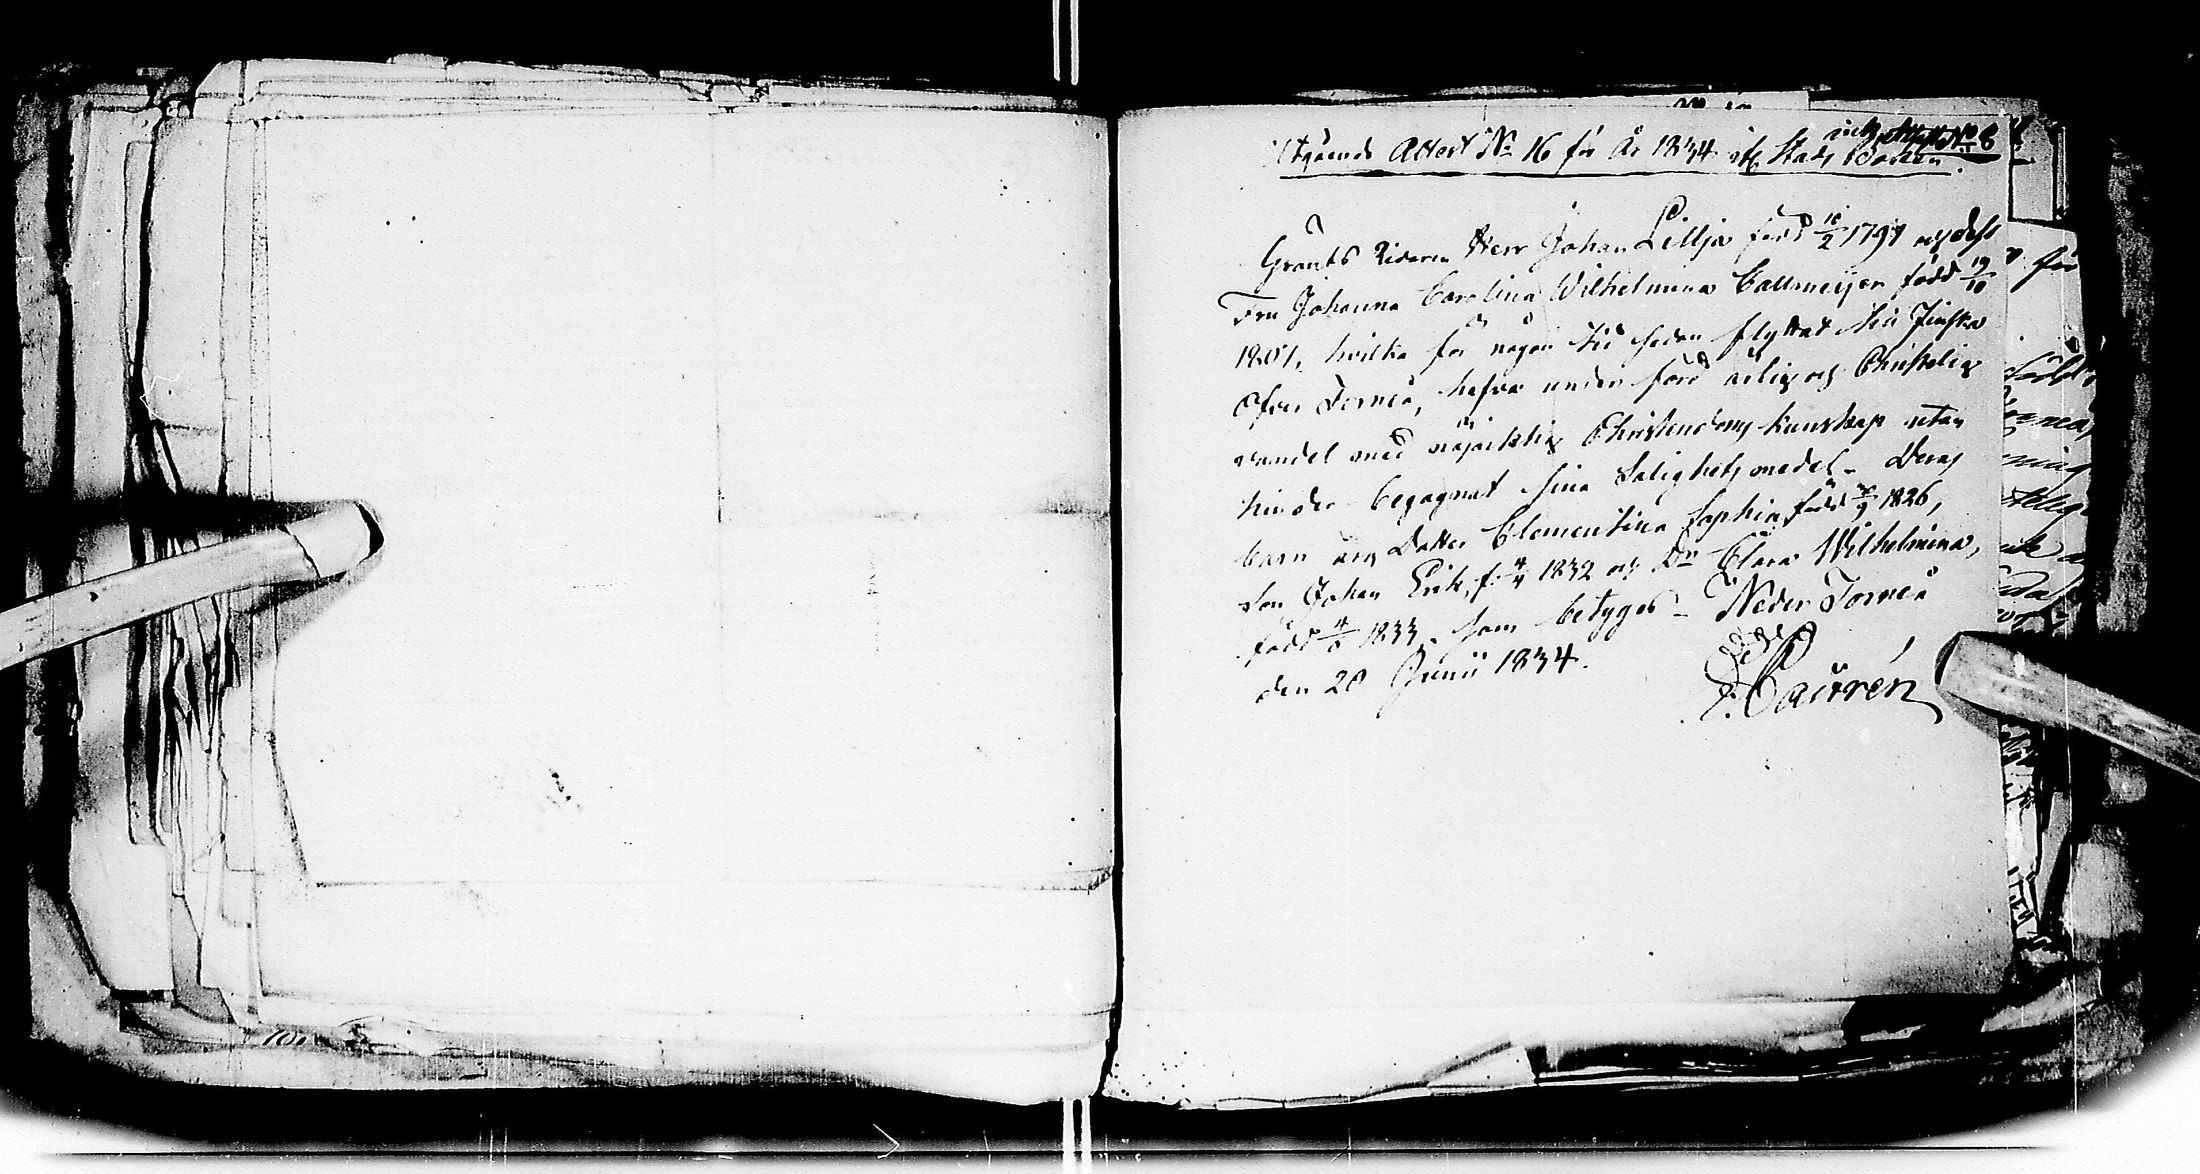 Utgående Attest No 16 för År 1834 Stads Boken.
No 8
Gränts Ridaren Herr Johan Lillja född 16/2 1797 och dess
Fru Johanna Carolina Wilhelmina Callmeijer född 19/10
1801, hvilka för någon tid sedan flyttat till Finska
Öfver Torneå, hafva under förd ärlig och Christelig
vandel med nöjacktig Christendoms kunskap utan
hinder begagnat sina Salighets medel. Deras
barn äro Dotter Clementina Sophia, född /9 1826,
Son Johan Erik, f. 4/4 1832 och Dr Clara Wilhelmina,
född 4/8 1833. Som betygas. Neder Torneå
den 20 Junii 1834.